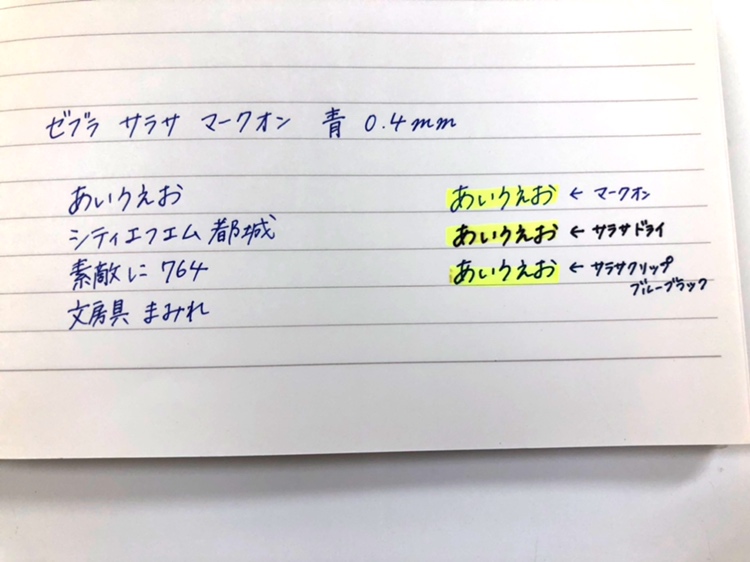 ゼブラ サラサ マークオン 青 0.4mm
あいうえお
シティエフエム都城
素敵に 764
文房具 まみれ
あいうえお ← マークオン
あいうえお ← サラサドライ
あいうえお ← サラサクリップ
ブルーブラック